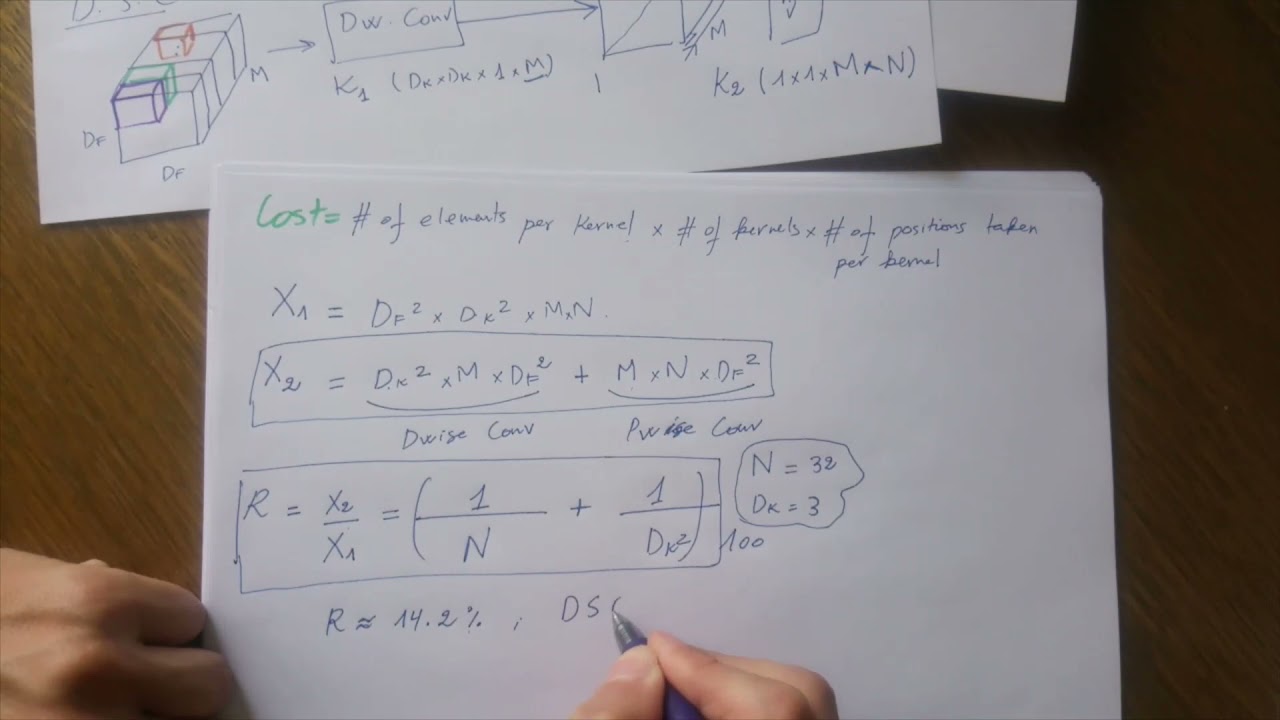 D.S.C
Dw. Conv
M
K1 (DK×DK×1×M)
1
M
K2 (1×1×M×N)
DF
DF
Cost = # of elements per kernel × # of kernels × # of positions taken
per kernel
X1 = DF² × DK² × M×N.
X2 = DK² × M × DF² + M × N × DF²
Dwise Conv
Pwise Conv
R = X2/X1 = (1/N + 1/DK²) 100
N = 32
DK = 3
R ≈ 14.2 % , DSC